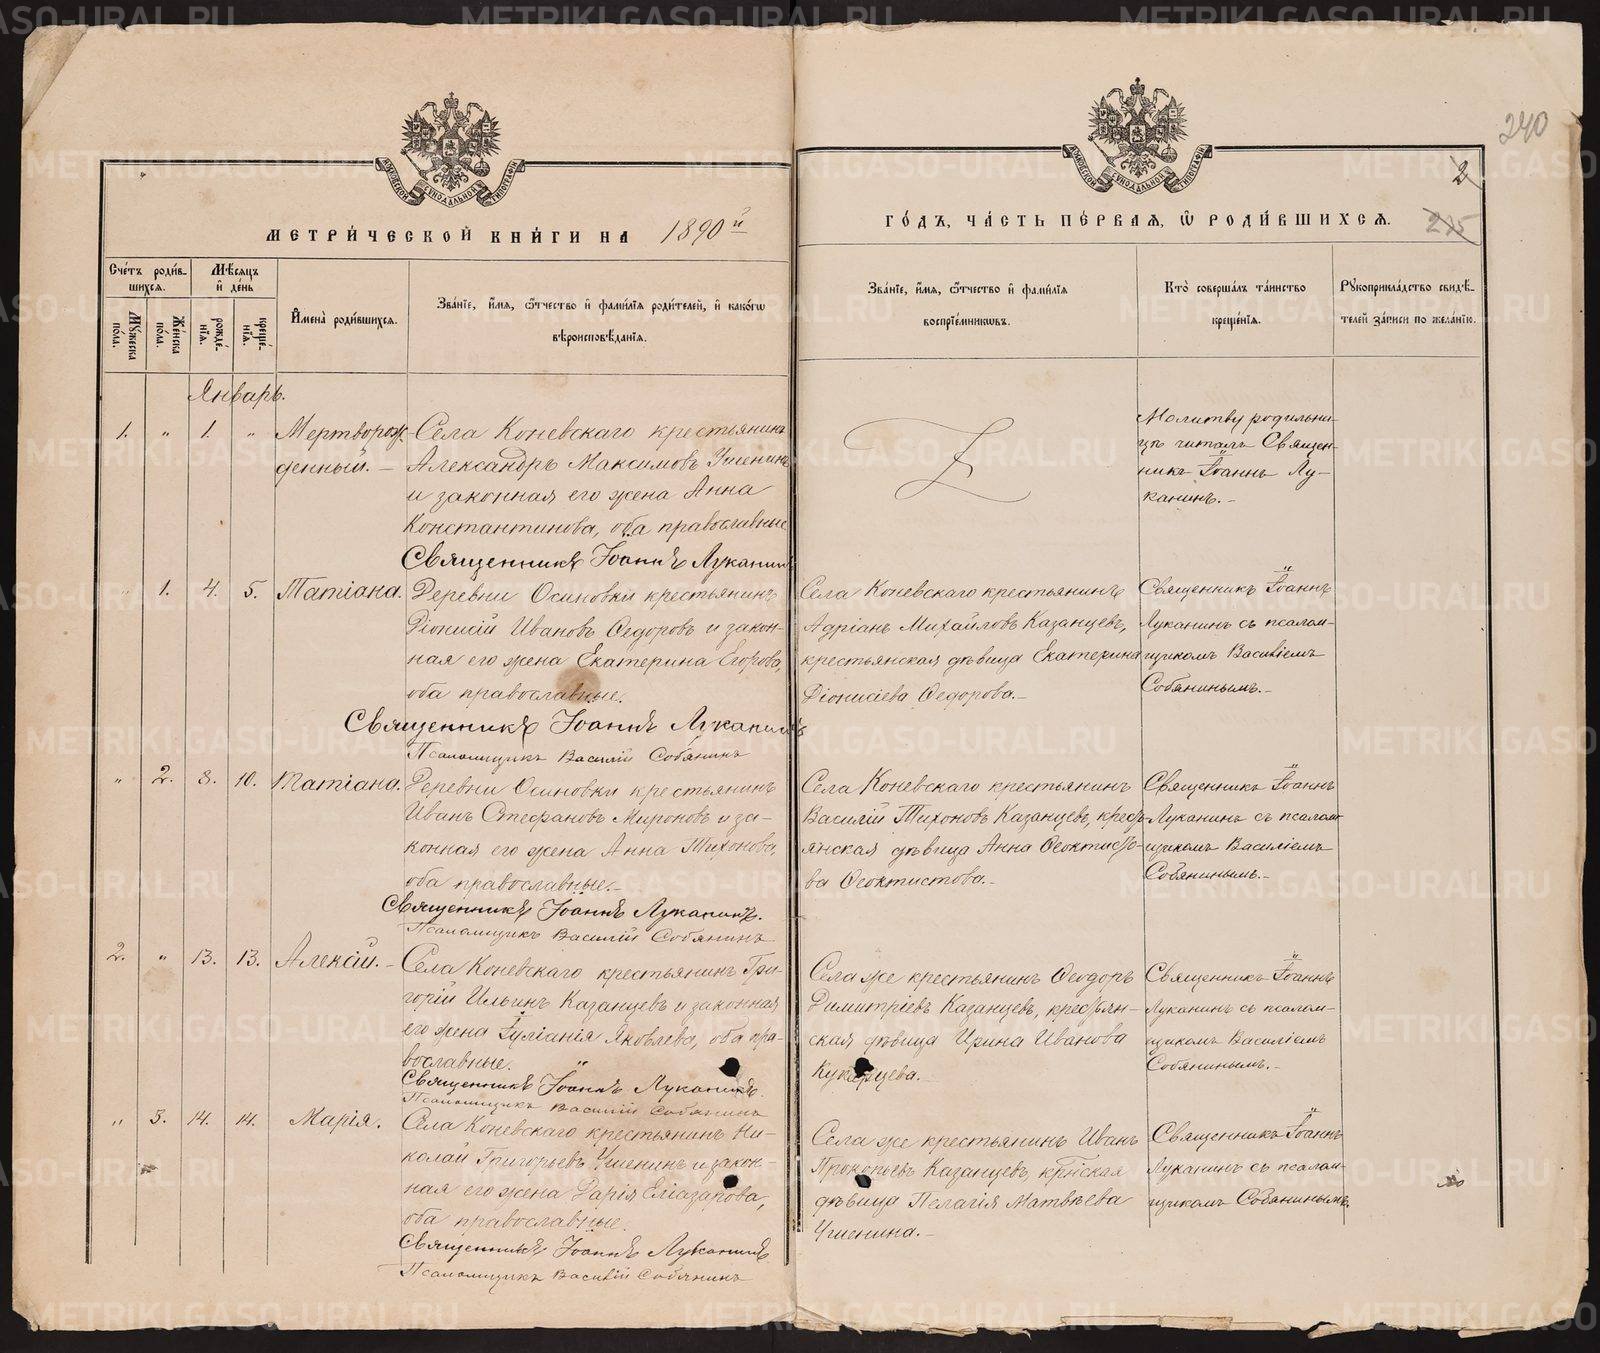 240
2
235
МЕТРИ́ЧЕСКОЙ КНИ́ГИ НА 1890й
ГО́ДЪ, ЧА́СТЬ ПЕ́РВАЯ, Ѡ РОДИ́ВШИХСЯ.
Сче́тъ роди́в-
шихся.
Му́жеска по́ла.
Же́нска по́ла.
Мѣ́сяцъ и де́нь
рожде́нїя.
креще́нїя.
Имена̀ роди́вшихся.
Зва́нїе, и́мя, ѻ҆́тчество и фами́лїя роди́телей, и како́гѡ
вѣроисповѣ́данїя.
Зва́нїе, и́мя, ѻ҆́тчество и фами́лїя
воспрїе́мникѡвъ.
Кто̀ соверша́лъ та́инство
креще́нїя.
Рукоприкла́дство свидѣ́-
телей за́писи по жела́нїю.
Январь.
1. " 1. " Мертворож-
денный.
Села Коневскаго крестьянинъ
Александръ Максимовъ
и законная его жена Анна
Константинова, оба православные
Священникъ Іоаннъ Луканинъ
Молитву родильни-
цѣ читалъ Священ-
никъ Іоаннъ Лу-
канинъ.
" 1. 4. 5. Татіана.
Деревни Осиновки крестьянинъ
Діонисій Ивановъ Ѳедоровъ и закон-
ная его жена Екатерина Егорова,
оба православные.
Священникъ Іоаннъ Луканинъ
Псаломщикъ Василій Собянинъ
Села Коневскаго крестьянинъ
Адріанъ Михайловъ Казанцевъ,
крестьянская дѣвица Екатерина
Діонисіева Ѳедорова.
Священникъ Іоаннъ
Луканинъ съ псалом-
щикомъ Василіемъ
Собянинымъ.
" 2. 8. 10. Татіана.
Деревни Осиновки крестьянинъ
Иванъ Стефановъ Мироновъ и за-
конная его жена Анна Тихонова,
оба православные.
Священникъ Іоаннъ Луканинъ.
Псаломщикъ Василій Собянинъ
Села Коневскаго крестьянинъ
Василій Тихоновъ Казанцевъ, кресть-
янская дѣвица Анна Ѳеоктисто-
ва Ѳеоктистова.
Священникъ Іоаннъ
Луканинъ съ псалом-
щикомъ Василіемъ
Собянинымъ.
2. " 13. 13. Алексій.
Села Коневскаго крестьянинъ Гри-
горій Ильинъ Казанцевъ и законная
его жена Іуліанія Яковлева, оба пра-
вославные.
Священникъ Іоаннъ Луканинъ.
Псаломщикъ Василій Собянинъ
Села же крестьянинъ Ѳеодоръ
Димитріевъ Казанцевъ, крестьян-
ская дѣвица Ирина Иванова
Священникъ Іоаннъ
Луканинъ съ псалом-
щикомъ Василіемъ
Собянинымъ.
" 3. 14. 14. Марія.
Села Коневскаго крестьянинъ Ни-
колай Григорьевъ и закон-
ная его жена Дарія Еліазарова,
оба православные.
Священникъ Іоаннъ Луканинъ
Псаломщикъ Василій Собянинъ
Села же крестьянинъ Иванъ
Прокопьевъ Казанцевъ,
дѣвица Пелагія Матвѣева
Священникъ Іоаннъ
Луканинъ съ псалом-
щикомъ Собянинымъ.
METRIKI.GASO-URAL.RU